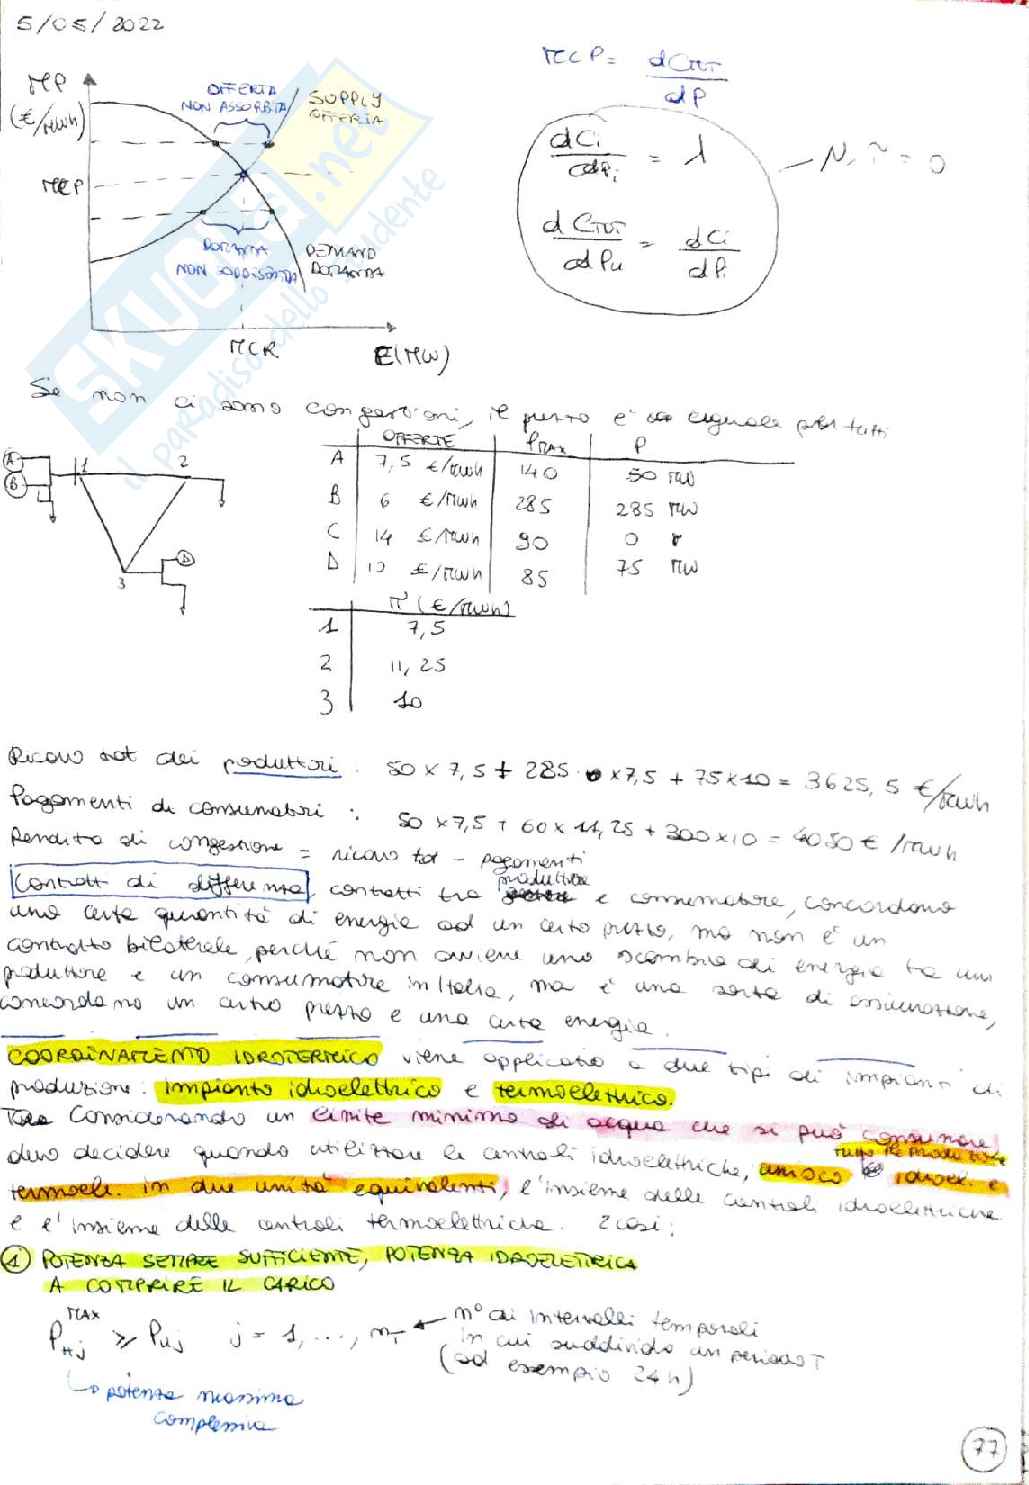 5/05/2022
MCP = dCTOT / dP
MP
(€/MWh)
OFFERTA
NON ASSORBITA
SUPPLY
OFFERTA
dCi / dPi = λ
N, π = 0
MCP
dCTOT / dPu = dCi / dPi
DOMANDA
NON SODDISFATTA
DEMAND
DOMANDA
MCR
E(MW)
SKUOLA.net
il paradiso dello studente
Se non ci sono congestioni, il prezzo è uguale per tutti
OFFERTE PMAX P
A 7,5 €/MWh 140 50 MW
B 6 €/MWh 285 285 MW
C 14 €/MWh 90 0
D 10 €/MWh 85 75 MW
A
B
1
2
3
D
π (€/MWh)
1 7,5
2 11,25
3 10
Ricavo tot dei produttori: 50 x 7,5 + 285 x 7,5 + 75 x 10 = 3625,5 €/MWh
Pagamenti di consumatori: 50 x 7,5 + 60 x 11,25 + 300 x 10 = 4050 € /MWh
Rendita di congestione = ricavo tot - pagamenti
Contratti di differenza, contratti tra produttore e consumatore, concordano
una certa quantità di energia ad un certo prezzo, ma non è un
contratto bilaterale, perché non avviene uno scambio di energia tra un
produttore e un consumatore in Italia, ma è una sorta di assicurazione,
concordano un certo prezzo e una certa energia.
COORDINAMENTO IDROTERMICO viene applicato a due tipi di impianti di
produzione: impianto idroelettrico e termoelettrico.
Considerando un limite minimo di acqua che si può consumare
devo decidere quando utilizzare le centrali idroelettriche, unisco tutta la produzione idroel. e
termoele. in due unità equivalenti, l'insieme delle centrali idroelettriche
e l'insieme delle centrali termoelettriche. 2 casi:
① POTENZA SEMPRE SUFFICIENTE, POTENZA IDROELETTRICA
A COMPRIRE IL CARICO
PHj MAX ≥ Puj j = 1, ..., nT ← n° di intervalli temporali
in cui suddivido un periodo T
(ad esempio 24h)
↳ potenza massima
complessiva
77